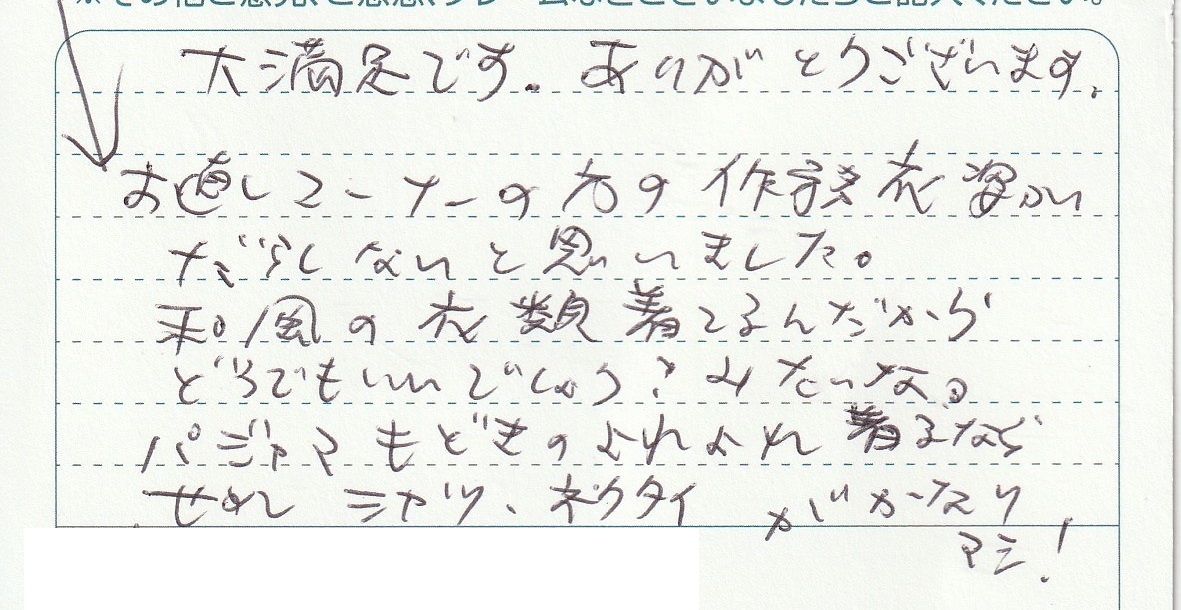 ※その他ご感想、ご意見、クレームなどございましたらご記入ください。
大満足です。ありがとうございます。
お直しコーナーの方の作務衣姿が
だらしないと思いました。
和風の衣類着てるんだから
どうでもいいでしょう?みたいな。
パジャマもどきのよれよれ着るなら
せめて シャツ、ネクタイ がかなり
マシ!